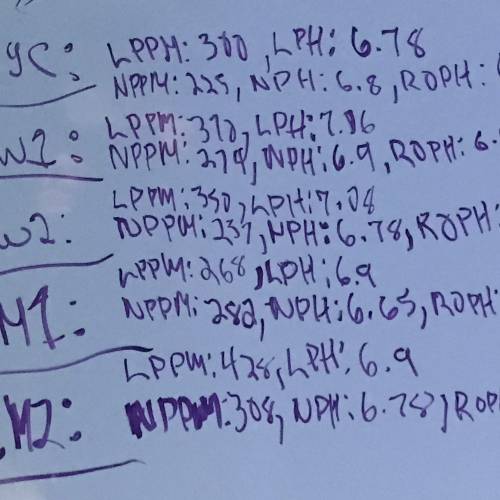 gC: LPPM: 300, LPH: 6.78
NPPM: 225, NPH: 6.8, ROPH:
w1: LPPM: 370, LPH: 7.06
NPPM: 279, NPH: 6.9, ROPH: 6.
w2: LPPM: 350, LPH: 7.08
NPPM: 237, NPH: 6.78, ROPH:
M1: LPPM: 268, LPH: 6.9
NPPM: 282, NPH: 6.65, ROPH:
M2: LPPM: 428, LPH: 6.9
NPPM: 308, NPH: 6.78, ROPH